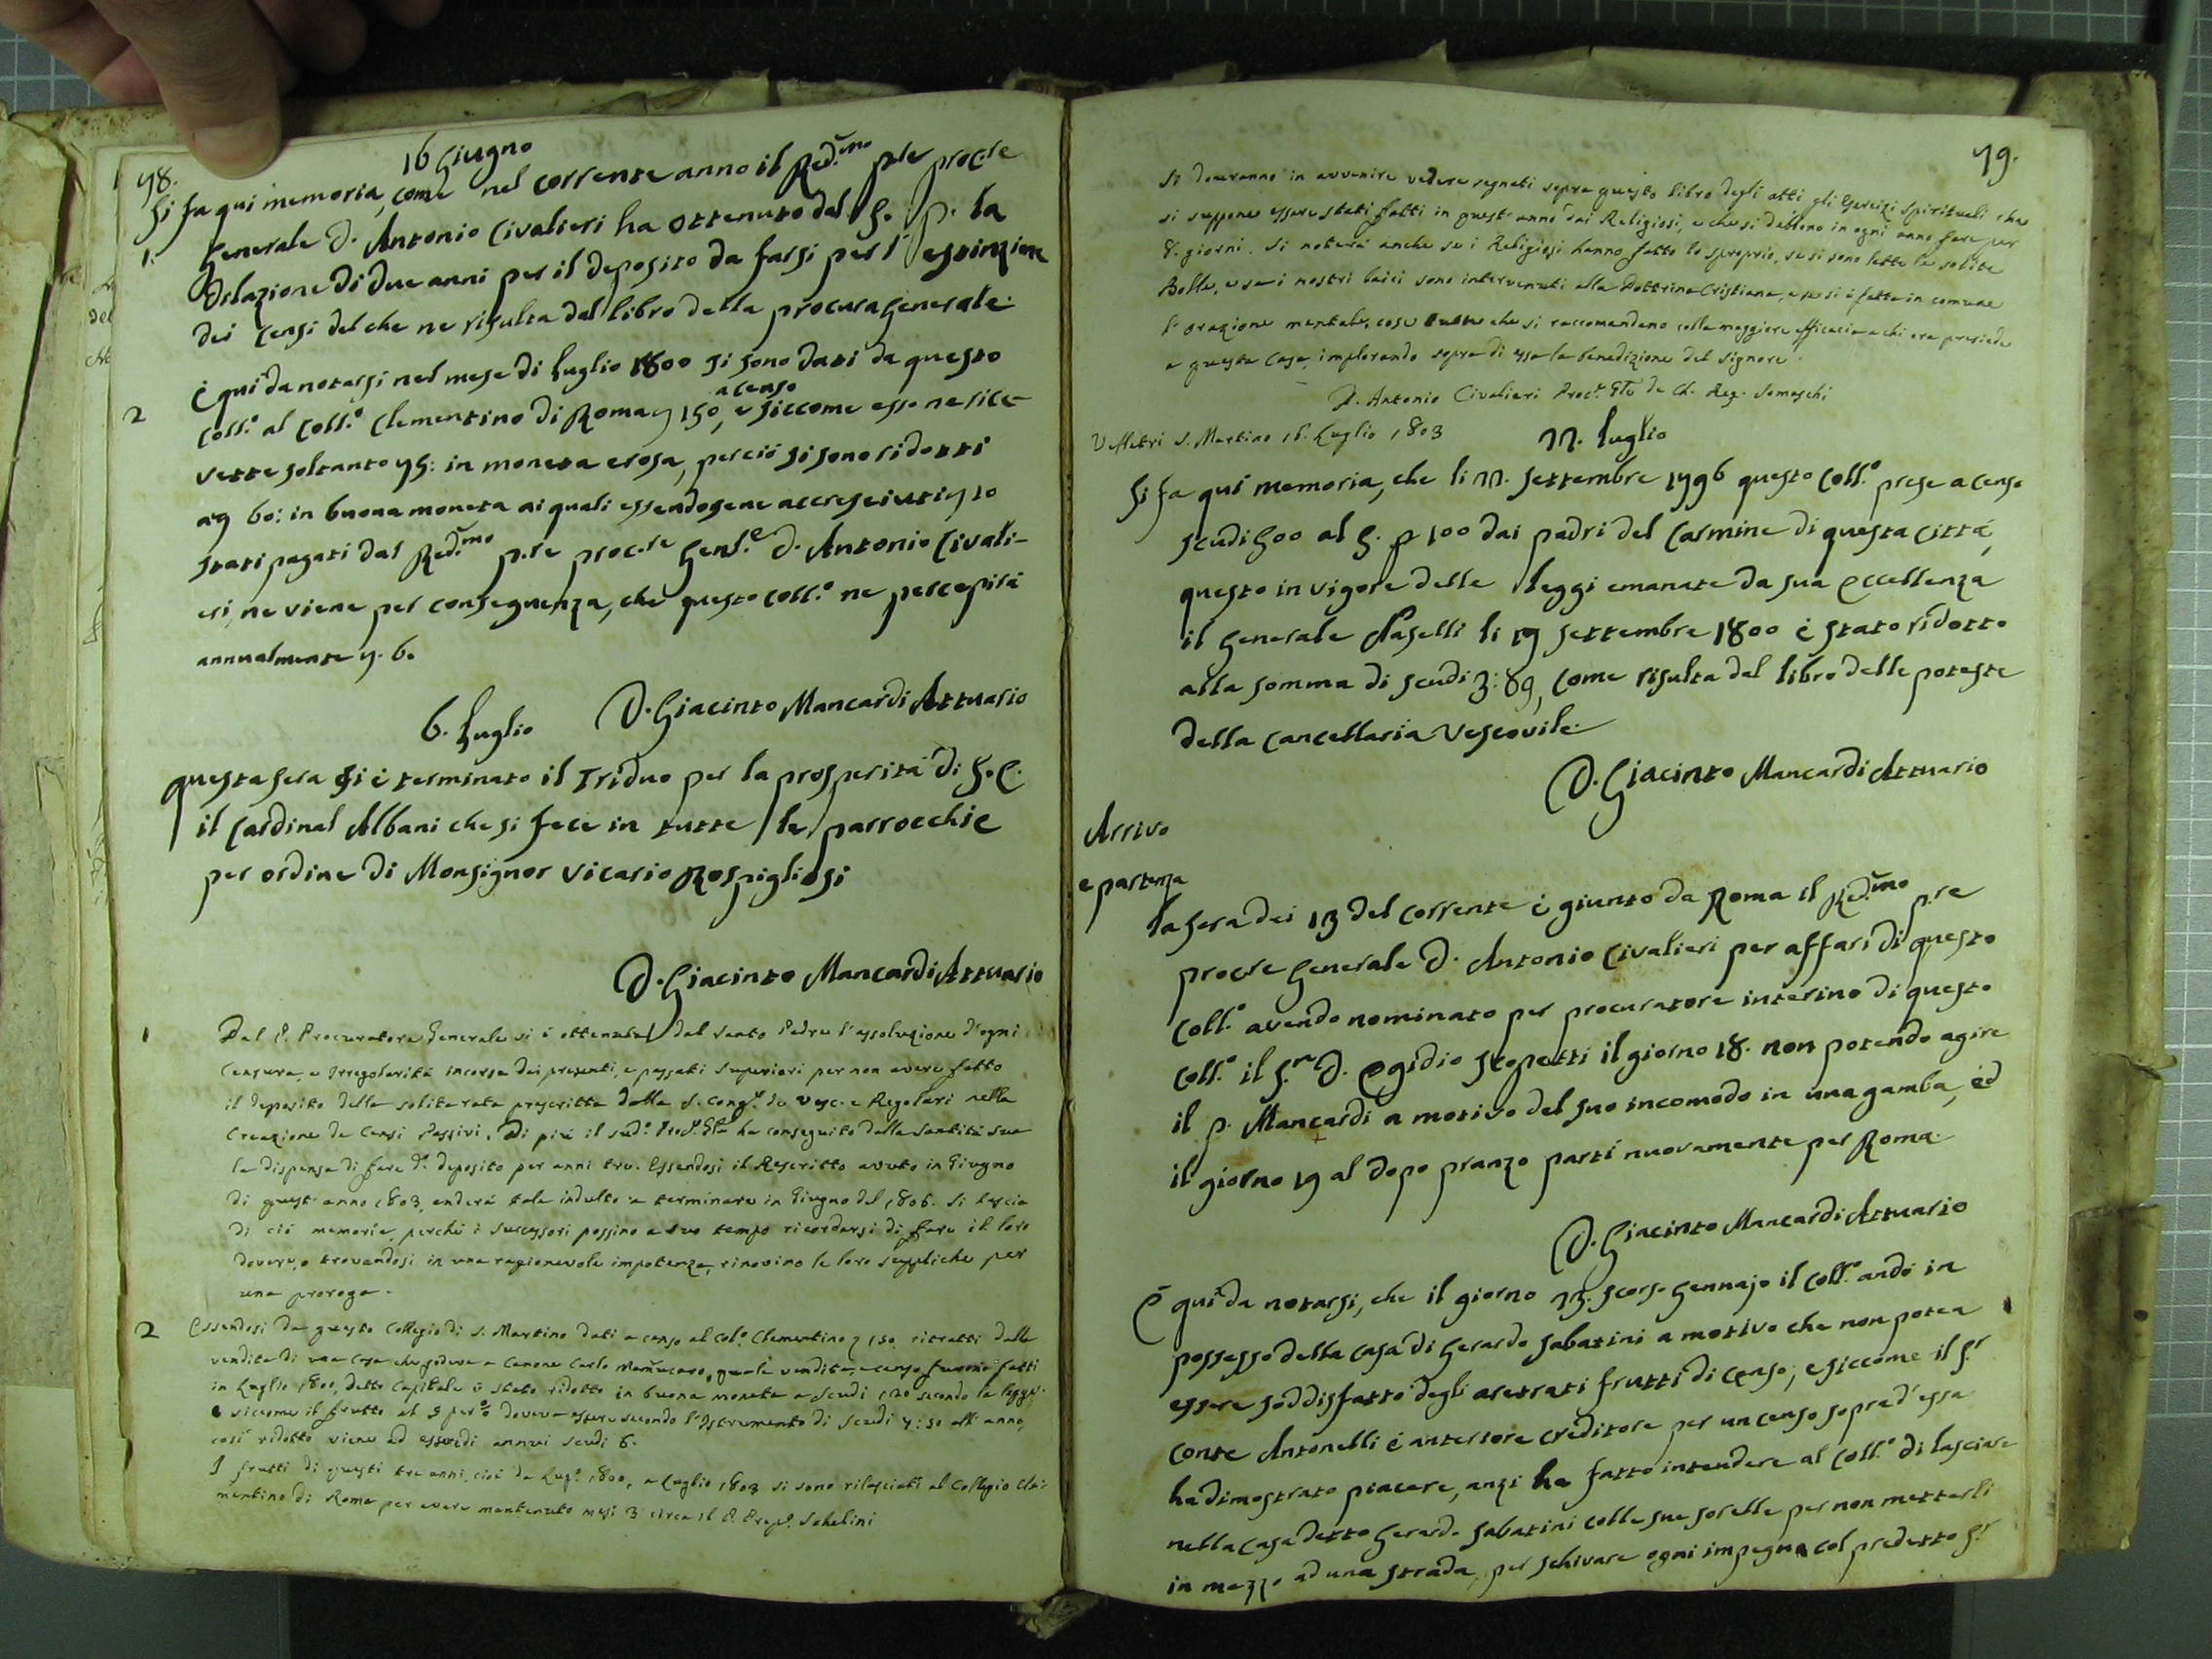 78.
16 Giugno
Si fa qui memoria, come nel corrente anno il Red.mo p.re proc.re
1. Generale D. Antonio Civalieri ha ottenuto dal S. p. la
dilazione di due anni per il deposito da farsi per l'estinzione
dei Censi del che ne risulta dal libro della procura Generale.
È qui da notarsi nel mese di Luglio 1800 si sono dati da questo
a censo
2 Coll.o al Coll.o Clementino di Roma 150, e siccome esso ne rice-
vette soltanto 75: in moneta erosa, perciò si sono ridotti
a 60: in buona moneta ai quali essendosene accresciuti 10
stati pagati dal Red.mo p.re proc.re Gen.le D. Antonio Civali-
eri, ne viene per conseguenza, che questo Coll.o ne percepirà
annualmente 6.
D. Giacinto Mancardi Attuario
6. Luglio
questa sera si è terminato il Triduo per la prosperità di S. E.
il Cardinal Albani che si fece in tutte le parrocchie
per ordine di Monsignor Vicario Rospigliosi
D. Giacinto Mancardi Attuario
1 Dal P. Procuratore Generale si è ottenuta dal Santo Padre l'assoluzione d'ogni
Censura, e Irregolarità incorsa dai presenti, e passati Superiori per non avere fatto
il deposito della solita rata prescritta dalla S. Cong.e de Vesc. e Regolari nella
Creazione de Censi Passivi. Di più il sud.o Proc. Gle ha conseguito dalla Santità Sua
la dispensa di fare d.o deposito per anni tre. Essendosi il Rescritto avuto in Giugno
di quest'anno 1803, anderà tale indulto a terminare in Giugno del 1806. Si lascia
di ciò memoria, perché i Successori possino a suo tempo ricordarsi di fare il loro
dovere, o trovandosi in una ragionevole impotenza, rinovino le loro suppliche per
una proroga.
2 Essendosi da questo Collegio di S. Martino dati a censo al Col.o Clementino 150 ritratti dalla
vendita di una Casa che godeva a Canone Carlo Mannucaro, quale vendita, e censo furono fatti
in Luglio 1800, detto Capitale è stato ridotto in buona moneta a scudi 120 secondo le leggi.
e siccome il frutto al 5 per % doveva essere secondo l'Istrumento di Scudi 7:50 all'anno,
così ridotto viene ad essere di annui scudi 6.
I frutti di questi tre anni, cioè da Lug.o 1800, a Luglio 1803 si sono rilasciati al Collegio Cle:
mentino di Roma per avere mantenuto mesi 3 circa il P. Prep.o Schelini
79.
Si doveranno in avvenire vedere segnati sopra questo libro degli atti gli Esercizi Spirituali che
si suppone essere stati fatti in quest'anno dai Religiosi, e che si debbono in ogni anno fare per
8. giorni. Si noterà anche se i Religiosi hanno fatto lo sproprio, se si sono lette le solite
Bolle, e se i nostri laici sono intervenuti alla Dottrina Cristiana, e se si è fatta in comune
l'orazione mentale, cose tutte che si raccomandano colla maggiore efficacia a chi ora presiede
a questa Casa, implorando sopra di essa la benedizione del Signore.
D. Antonio Civalieri Proc.r Gle de Ch. Reg. Somaschi
Velletri S. Martino 16. Luglio 1803
22. Luglio
Si fa qui memoria, che li 22. Settembre 1796 questo Coll.o prese a censo
scudi 500 al 5. p 100 dai padri del Carmine di questa Città,
questo in vigore delle leggi emanate da sua Eccellenza
il Generale Naselli li 19 Settembre 1800 è stato ridotto
alla somma di scudi 3:89, come risulta dal libro delle poteste
della Cancellaria Vescovile.
D. Giacinto Mancardi Attuario
Arrivo
e partenza
la sera dei 13 del corrente è giunto da Roma il Red.mo p.re
proc.re Generale D. Antonio Civalieri per affari di questo
Coll.o avendo nominato per procuratore interino di questo
Coll.o il S.r D. Egidio Stopetti il giorno 18. non potendo agire
il p. Mancardi a motivo del suo incomodo in una gamba, ed
il giorno 19 al dopo pranzo partì nuovamente per Roma.
D. Giacinto Mancardi Attuario
È qui da notarsi, che il giorno 23. scorso Gennajo il Coll.o andò in
possesso della casa di Gerardo Sabatini a motivo che non potea
essere soddisfatto degli aretrati frutti di Censo; e siccome il S.r
Conte Antonelli è anteriore creditore per un censo sopra d'essa
ha dimostrato piacere, anzi ha fatto intendere al Coll.o di lasciare
nella casa detto Gerardo Sabatini colle sue sorelle per non metterli
in mezzo ad una strada, per schivare ogni impegno col predetto S.r